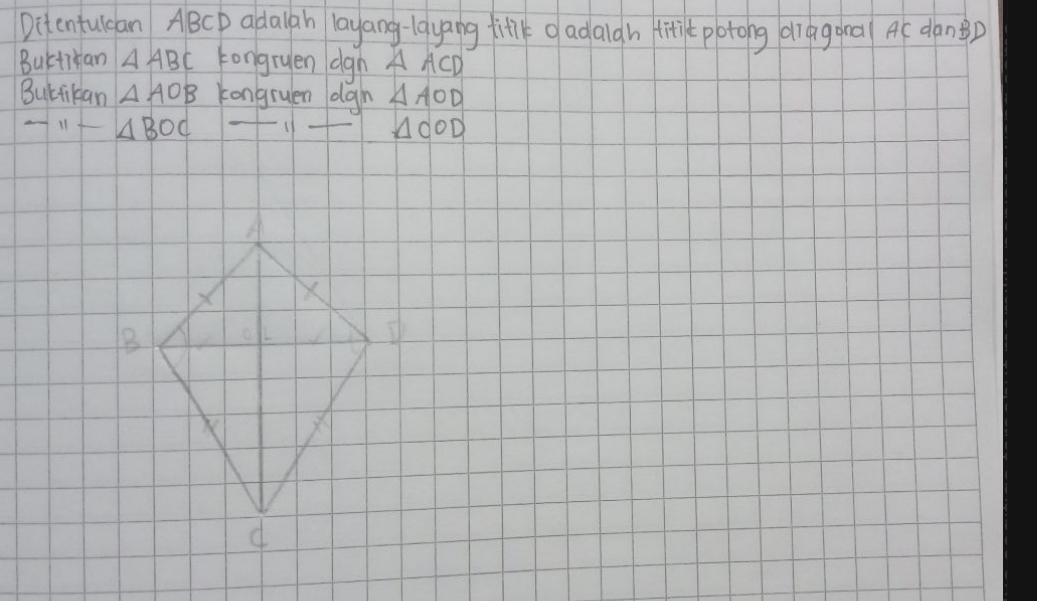 Ditentukan ABCD adalah layang-layang titik O adalah titik potong diagonal AC dan BD
Buktikan Δ ABC kongruen dgn Δ ACD
Buktikan Δ AOB kongruen dgn Δ AOD
— " — Δ BOC — " — Δ COD
A
B O D
C